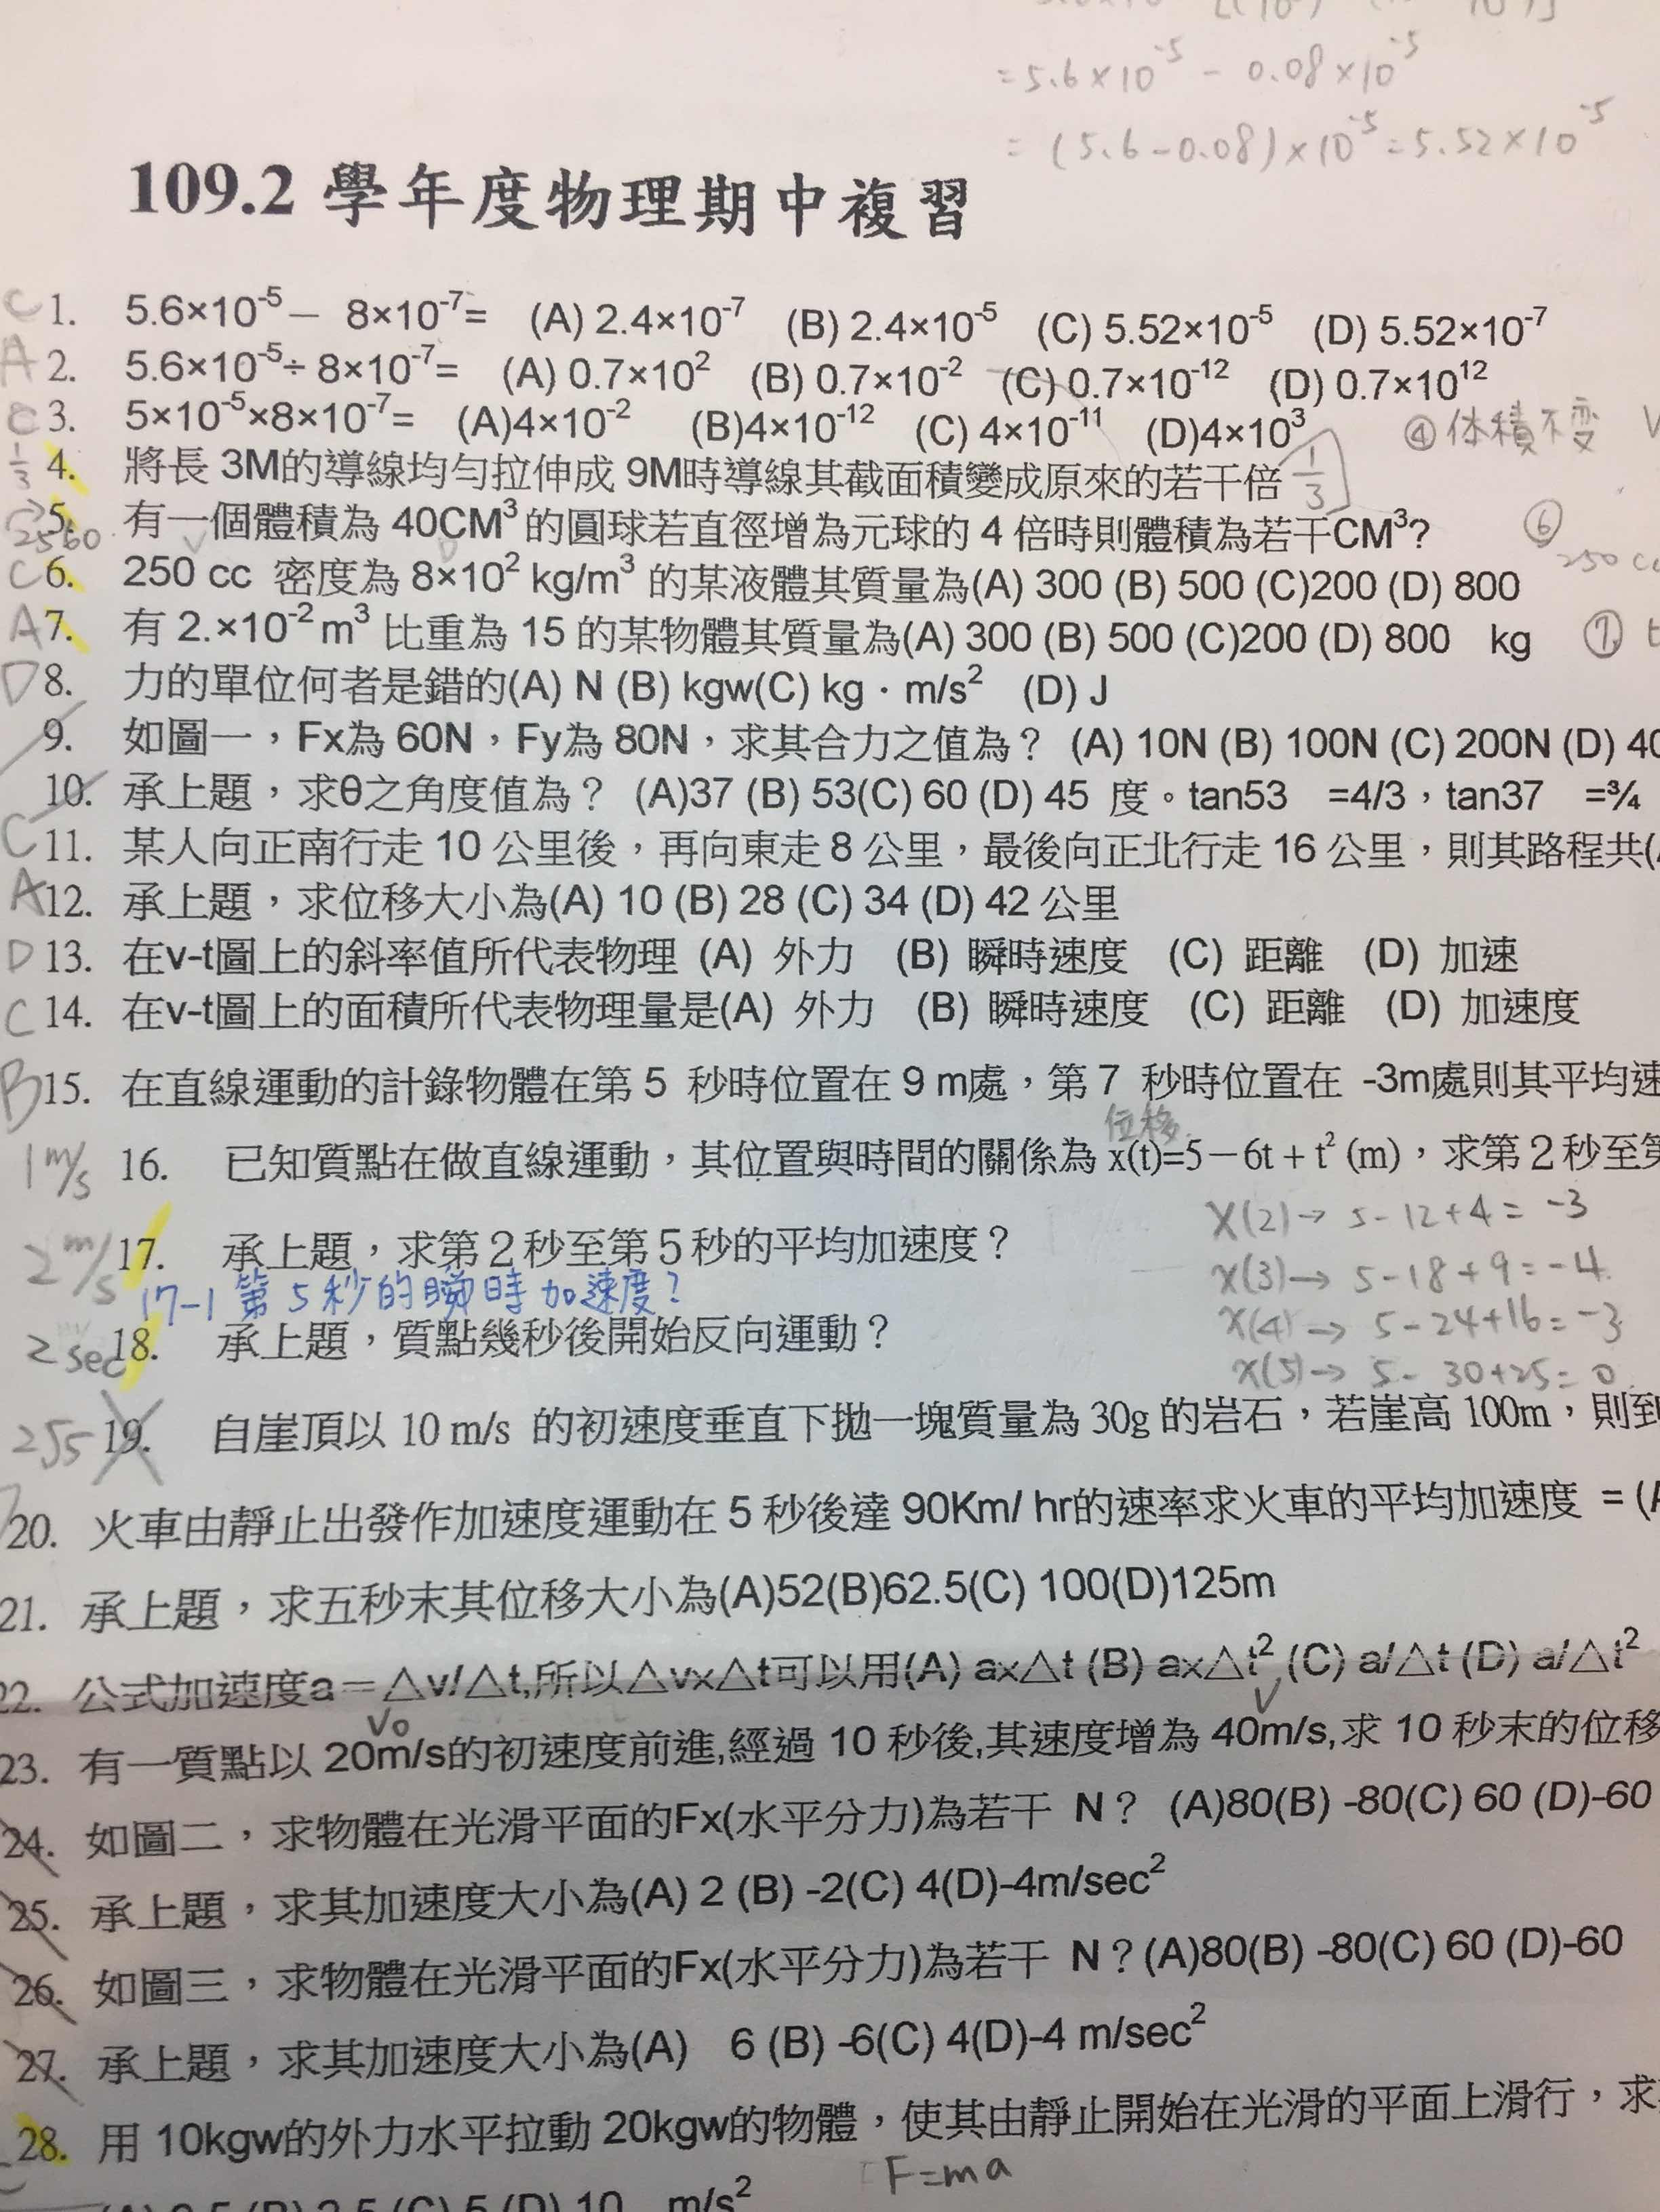 =5.6×10⁻⁵ - 0.08×10⁻⁵
= (5.6-0.08)×10⁻⁵=5.52×10⁻⁵
109.2 學年度物理期中複習
C 1. 5.6×10⁻⁵－ 8×10⁻⁷= (A) 2.4×10⁻⁷ (B) 2.4×10⁻⁵ (C) 5.52×10⁻⁵ (D) 5.52×10⁻⁷
A 2. 5.6×10⁻⁵÷ 8×10⁻⁷= (A) 0.7×10² (B) 0.7×10⁻² (C) 0.7×10⁻¹² (D) 0.7×10¹²
C 3. 5×10⁻⁵×8×10⁻⁷= (A)4×10⁻² (B)4×10⁻¹² (C) 4×10⁻¹¹ (D)4×10³
④体積不变 V
1/3 4. 將長 3M的導線均勻拉伸成 9M時導線其截面積變成原來的若干倍 1/3
2560 5. 有一個體積為 40CM³的圓球若直徑增為元球的 4 倍時則體積為若干CM³?
⑥
250 cc
C 6. 250 cc 密度為 8×10² kg/m³ 的某液體其質量為(A) 300 (B) 500 (C)200 (D) 800
A 7. 有 2.×10⁻² m³ 比重為 15 的某物體其質量為(A) 300 (B) 500 (C)200 (D) 800 kg
⑦
D 8. 力的單位何者是錯的(A) N (B) kgw(C) kg · m/s² (D) J
9. 如圖一，Fx為 60N，Fy為 80N，求其合力之值為？ (A) 10N (B) 100N (C) 200N (D) 40
10. 承上題，求θ之角度值為？ (A)37 (B) 53(C) 60 (D) 45 度。tan53 =4/3，tan37 =¾
C 11. 某人向正南行走 10 公里後，再向東走 8 公里，最後向正北行走 16 公里，則其路程共(
A 12. 承上題，求位移大小為(A) 10 (B) 28 (C) 34 (D) 42 公里
D 13. 在v-t圖上的斜率值所代表物理 (A) 外力 (B) 瞬時速度 (C) 距離 (D) 加速
C 14. 在v-t圖上的面積所代表物理量是(A) 外力 (B) 瞬時速度 (C) 距離 (D) 加速度
B 15. 在直線運動的計錄物體在第 5 秒時位置在 9 m處，第 7 秒時位置在 -3m處則其平均速
位移
1 m/s 16. 已知質點在做直線運動，其位置與時間的關係為 x(t)=5－6t + t² (m)，求第 2 秒至第
x(2)→ 5-12+4 = -3
2 m/s 17. 承上題，求第 2 秒至第 5 秒的平均加速度？
x(3)→ 5-18+9=-4
17-1 第 5 秒的瞬時加速度?
x(4)→ 5-24+16=-3
2 sec 18. 承上題，質點幾秒後開始反向運動？
x(5)→ 5- 30+25= 0
2√5 19. 自崖頂以 10 m/s 的初速度垂直下拋一塊質量為 30g 的岩石，若崖高 100m，則到
20. 火車由靜止出發作加速度運動在 5 秒後達 90Km/ hr的速率求火車的平均加速度 = (A
21. 承上題，求五秒末其位移大小為(A)52(B)62.5(C) 100(D)125m
22. 公式加速度a＝△v/△t,所以△vx△t可以用(A) ax△t (B) ax△t² (C) a/△t (D) a/△t²
V₀ V
23. 有一質點以 20m/s的初速度前進,經過 10 秒後,其速度增為 40m/s,求 10 秒末的位移
24. 如圖二，求物體在光滑平面的Fx(水平分力)為若干 N？ (A)80(B) -80(C) 60 (D)-60
25. 承上題，求其加速度大小為(A) 2 (B) -2(C) 4(D)-4m/sec²
26. 如圖三，求物體在光滑平面的Fx(水平分力)為若干 N？(A)80(B) -80(C) 60 (D)-60
27. 承上題，求其加速度大小為(A) 6 (B) -6(C) 4(D)-4 m/sec²
28. 用 10kgw的外力水平拉動 20kgw的物體，使其由靜止開始在光滑的平面上滑行，求
F=ma
(C) 5 (D) 10 m/s²